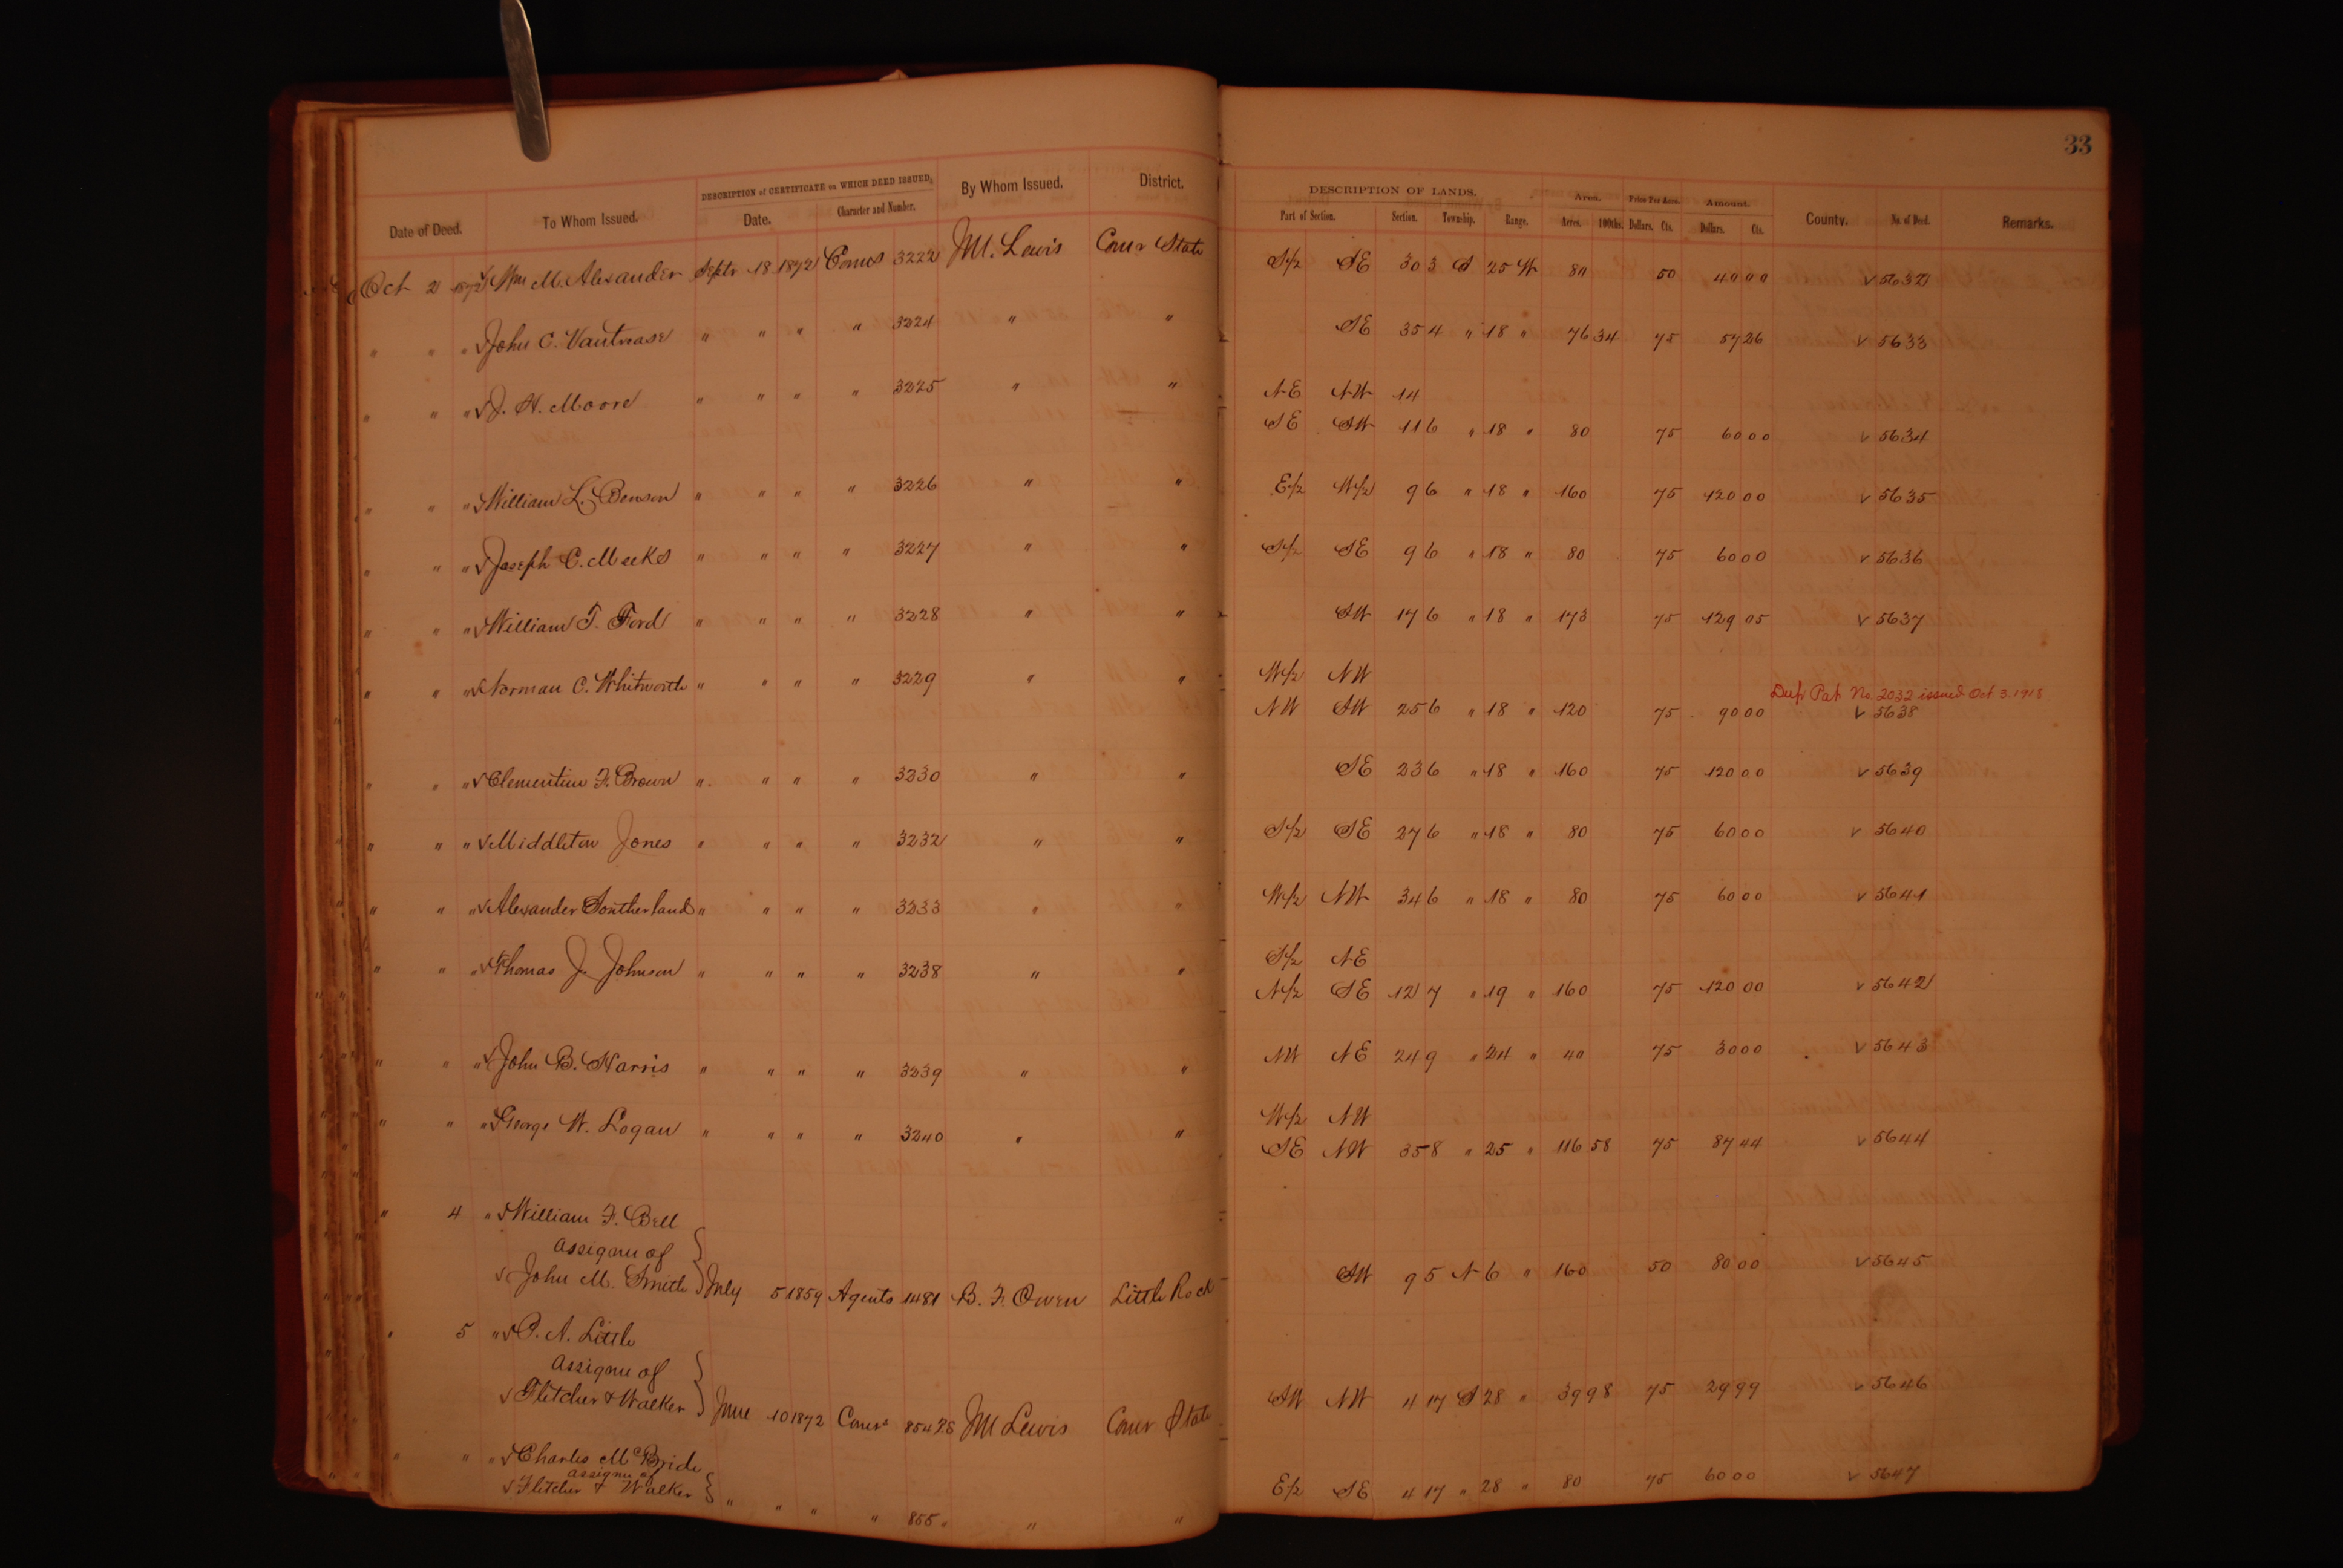 33
DESCRIPTION of CERTIFICATE on WHICH DEED ISSUED. By Whom Issued. District. DESCRIPTION OF LANDS. Area. Price Per Acre. Amount.
Date of Deed. To Whom Issued. Date. Character and Number. Part of Section. Section. Township. Range. Acres. 100ths. Dollars. Cts. Dollars. Cts. County. No. of Deed. Remarks.
Oct 2 1872 √ Wm M. Alexander Septr 18 1872 Comrs 3222 J M. Lewis Comr State S/2 SE 30 3 S 25 W 80 50 40 00 √ 5632
" " " √ John C. Vautrease " " " " 3224 " " SE 35 4 " 18 " 76 34 75 57 26 √ 5633
" " " √ J. H. Moore " " " " 3225 " " NE NW 14
SE SW 11 6 " 18 " 80 75 60 00 √ 5634
" " " √ William L. Benson " " " " 3226 " " E/2 W/2 9 6 " 18 " 160 75 120 00 √ 5635
" " " √ Joseph C. Meeks " " " " 3227 " " S/2 SE 9 6 " 18 " 80 75 60 00 √ 5636
" " " √ William T. Ford " " " " 3228 " " SW 17 6 " 18 " 173 75 129 05 √ 5637
" " " √ Norman C. Whitworth " " " " 3229 " " W/2 NW
Dup. Pat. No. 2032 issued Oct 3. 1918
NW SW 25 6 " 18 " 120 75 90 00 √ 5638
" " " √ Clementine F. Brown " " " " 3230 " " SE 23 6 " 18 " 160 75 120 00 √ 5639
" " " √ Middleton Jones " " " " 3232 " " S/2 SE 27 6 " 18 " 80 75 60 00 √ 5640
" " " √ Alexander Southerland " " " " 3233 " " W/2 NW 34 6 " 18 " 80 75 60 00 √ 5641
" " " √ Thomas J. Johnson " " " " 3238 " " S/2 NE
N/2 SE 12 7 " 19 " 160 75 120 00 √ 5642
" " " √ John B. Harris " " " " 3239 " " NW NE 24 9 " 24 " 40 75 30 00 √ 5643
" " " √ George W. Logan " " " " 3240 " " W/2 NW
SE NW 35 8 " 25 " 116 58 75 87 44 √ 5644
" 4 " √ William F. Bell
assignee of
√ John M. Smith July 5 1859 Agents 1481 B. F. Owen Little Rock SW 9 5 N 6 " 160 50 80 00 √ 5645
" 5 " √ P. A. Little
assignee of
√ Fletcher & Walker June 10 1872 Comrs 854 P.S J M Lewis Comr State SW NW 4 17 S 28 " 39 98 75 29 99 √ 5646
" " " √ Charles McBride
assignee of
√ Fletcher & Walker " " " " 855 " " " E/2 SE 4 17 " 28 " 80 75 60 00 √ 5647